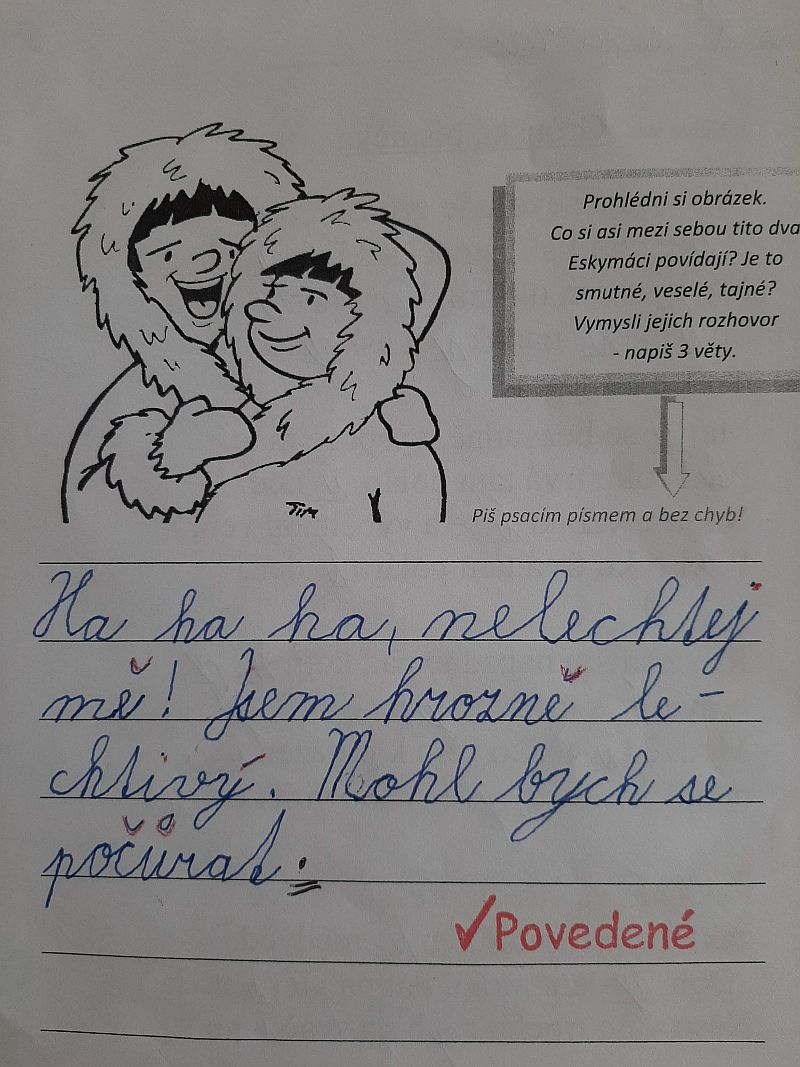 Prohlédni si obrázek.
Co si asi mezi sebou tito dva
Eskymáci povídají? Je to
smutné, veselé, tajné?
Vymysli jejich rozhovor
- napiš 3 věty.
Tim
Piš psacím písmem a bez chyb!
Ha ha ha, nelechtej
mě! Jsem hrozně le-
chtivý. Mohl bych se
počůrat.
✓Povedené